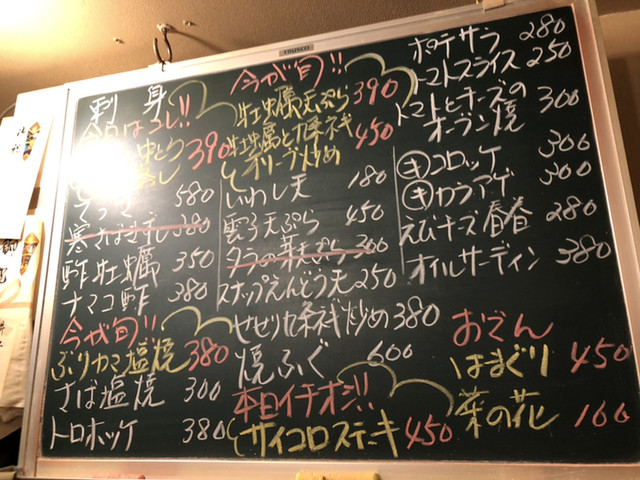 TRUSCO
刺身
今日はコレ!!
390
580
寒さばきずし 380
酢牡蠣 350
ナマコ酢 380
今が旬!!
ぶりカマ塩焼 380
さば塩焼 300
トロホッケ 380
今が旬!!
牡蠣天ぷら 390
牡蠣と九条ネギ 450
オリーブ炒め
いわし天 180
雲子天ぷら 450
タラの芽天ぷら 300
スナップえんどう天 250
せせり九条ネギ炒め 380
焼ふぐ 600
本日イチオシ!!
サイコロステーキ 450
ポテサラ 280
トマトスライス 250
トマトとチーズの
オーブン焼 300
キコロッケ 300
キカラアゲ 300
えびチーズ春巻 280
オイルサーディン 380
おでん
はまぐり 450
菜の花 100